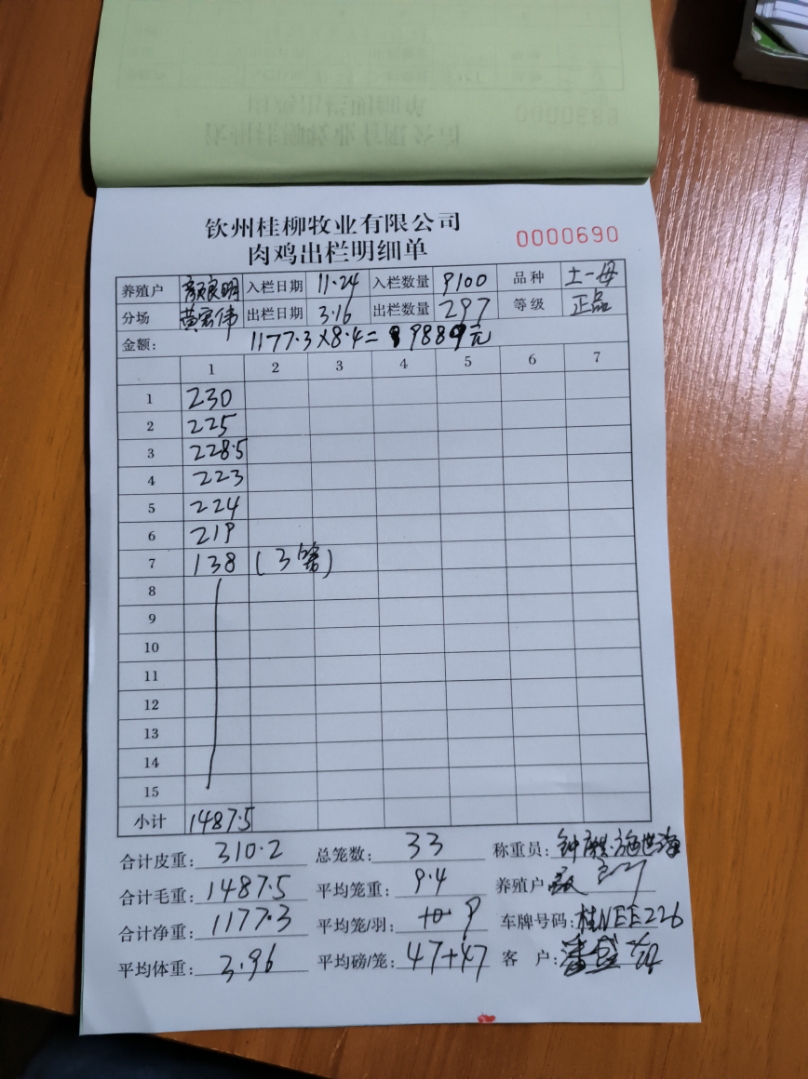 钦州桂柳牧业有限公司
肉鸡出栏明细单 0000690
养殖户 颜良明 入栏日期 11.24 入栏数量 9100 品种 土一母
分场 黄宏伟 出栏日期 3.16 出栏数量 297 等级 正品
金额: 1177.3×8.4= 9889元
1 2 3 4 5 6 7
1 230
2 225
3 228.5
4 223
5 224
6 219
7 138 (3笼)
8
9
10
11
12
13
14
15
小计 1487.5
合计皮重: 310.2 总笼数: 33 称重员:
合计毛重: 1487.5 平均笼重: 9.4 养殖户
合计净重: 1177.3 平均笼/羽: 9 车牌号码: 桂NEE226
平均体重: 3.96 平均磅/笼: 47+47 客户: